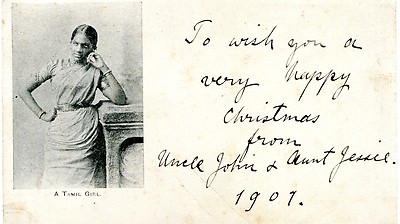 To wish you a
very happy
Christmas
from
Uncle John & Aunt Jessie.
1907.
A TAMIL GIRL.